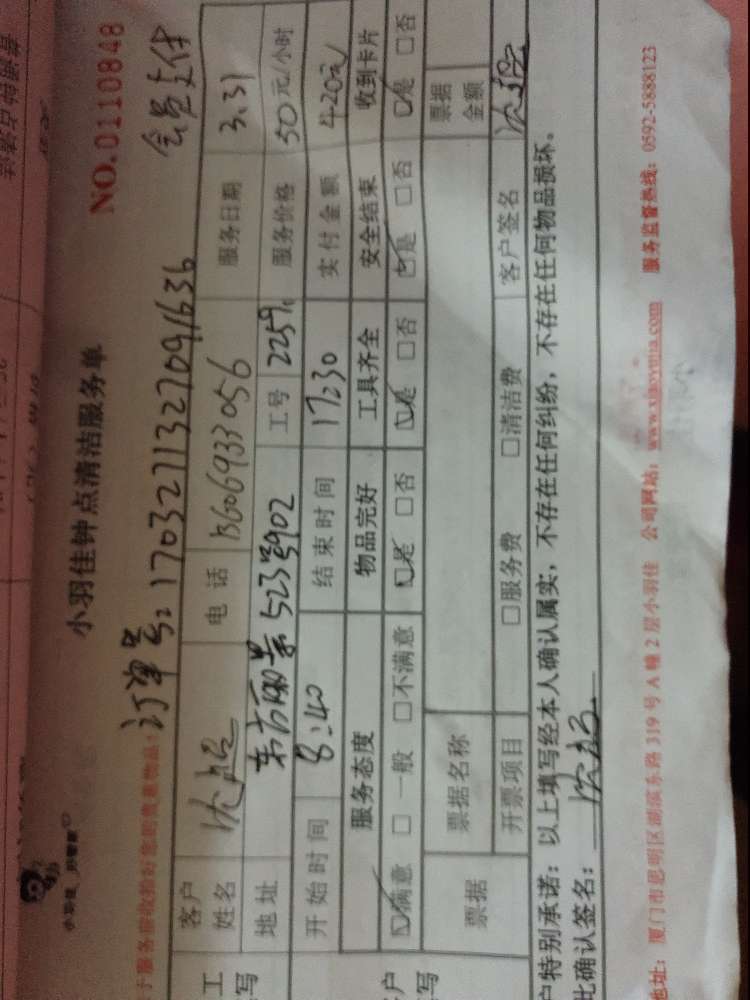 小羽佳钟点清洁服务单
NO.0110848
订单号：1703211327091636 会员支付
客户姓名 电话 服务日期 3.31
地址 东方丽景523号902 工号 服务价格 50元/小时
开始时间 8:40 结束时间 17:30 实付金额 420元
服务态度 物品完好 工具齐全 安全结束 收到卡片
☑满意 □一般 □不满意 ☑是 □否 ☑是 □否 ☑是 □否 ☑是 □否
票据 票据名称 票据金额
开票项目 □服务费 □清洁费 客户签名
户特别承诺：以上填写经本人确认属实，不存在任何纠纷，不存在任何物品损坏。
此确认签名：
地址：厦门市思明区湖滨东路319号A幢2层小羽佳 公司网站：www.xiaoyujia.com 服务监督热线：0592-5888123